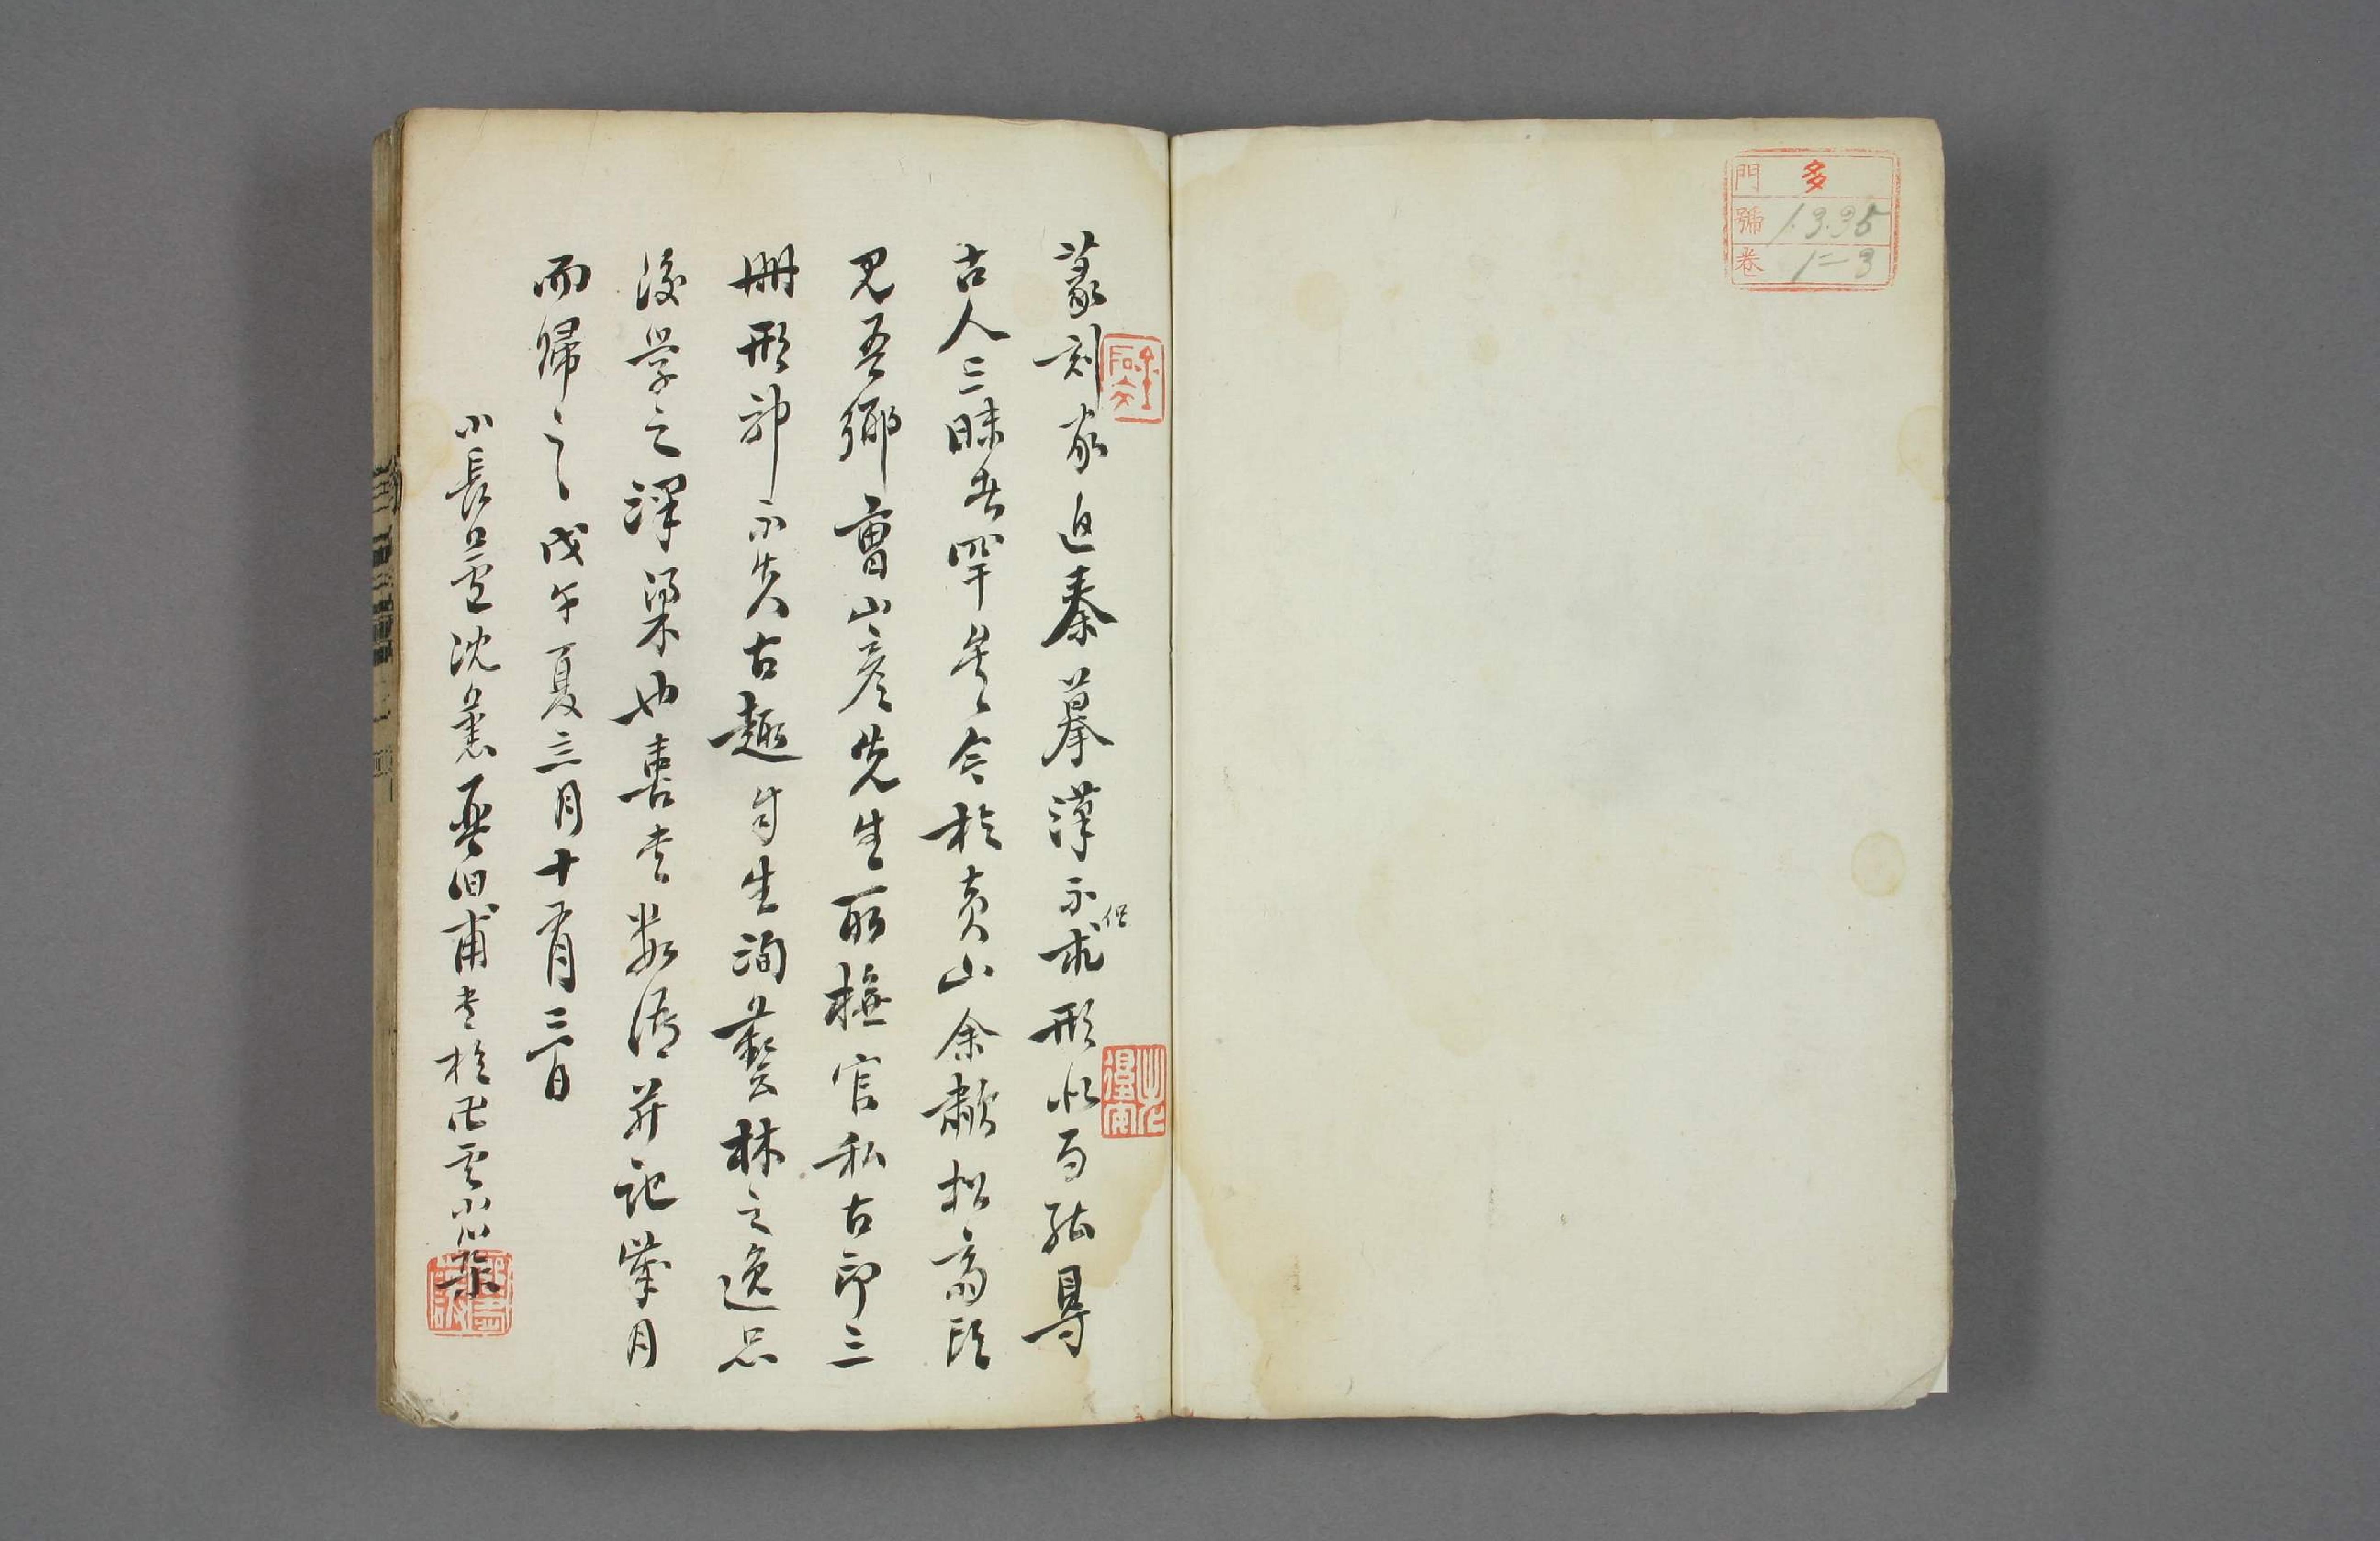 門 多
號 1.3.95
卷 1=3
篆刻家追秦摹漢不求形似而能得
但
古人三昧者罕矣今於黃山余
見吾鄉曹山彥先生所橅官私古印三
冊形神不失古趣自生洵藝林之逸品
後學之津梁也喜書數語并記歲月
而歸之戊午夏三月十有三日
小長蘆沈蕙 伯甫書於卍雲小築